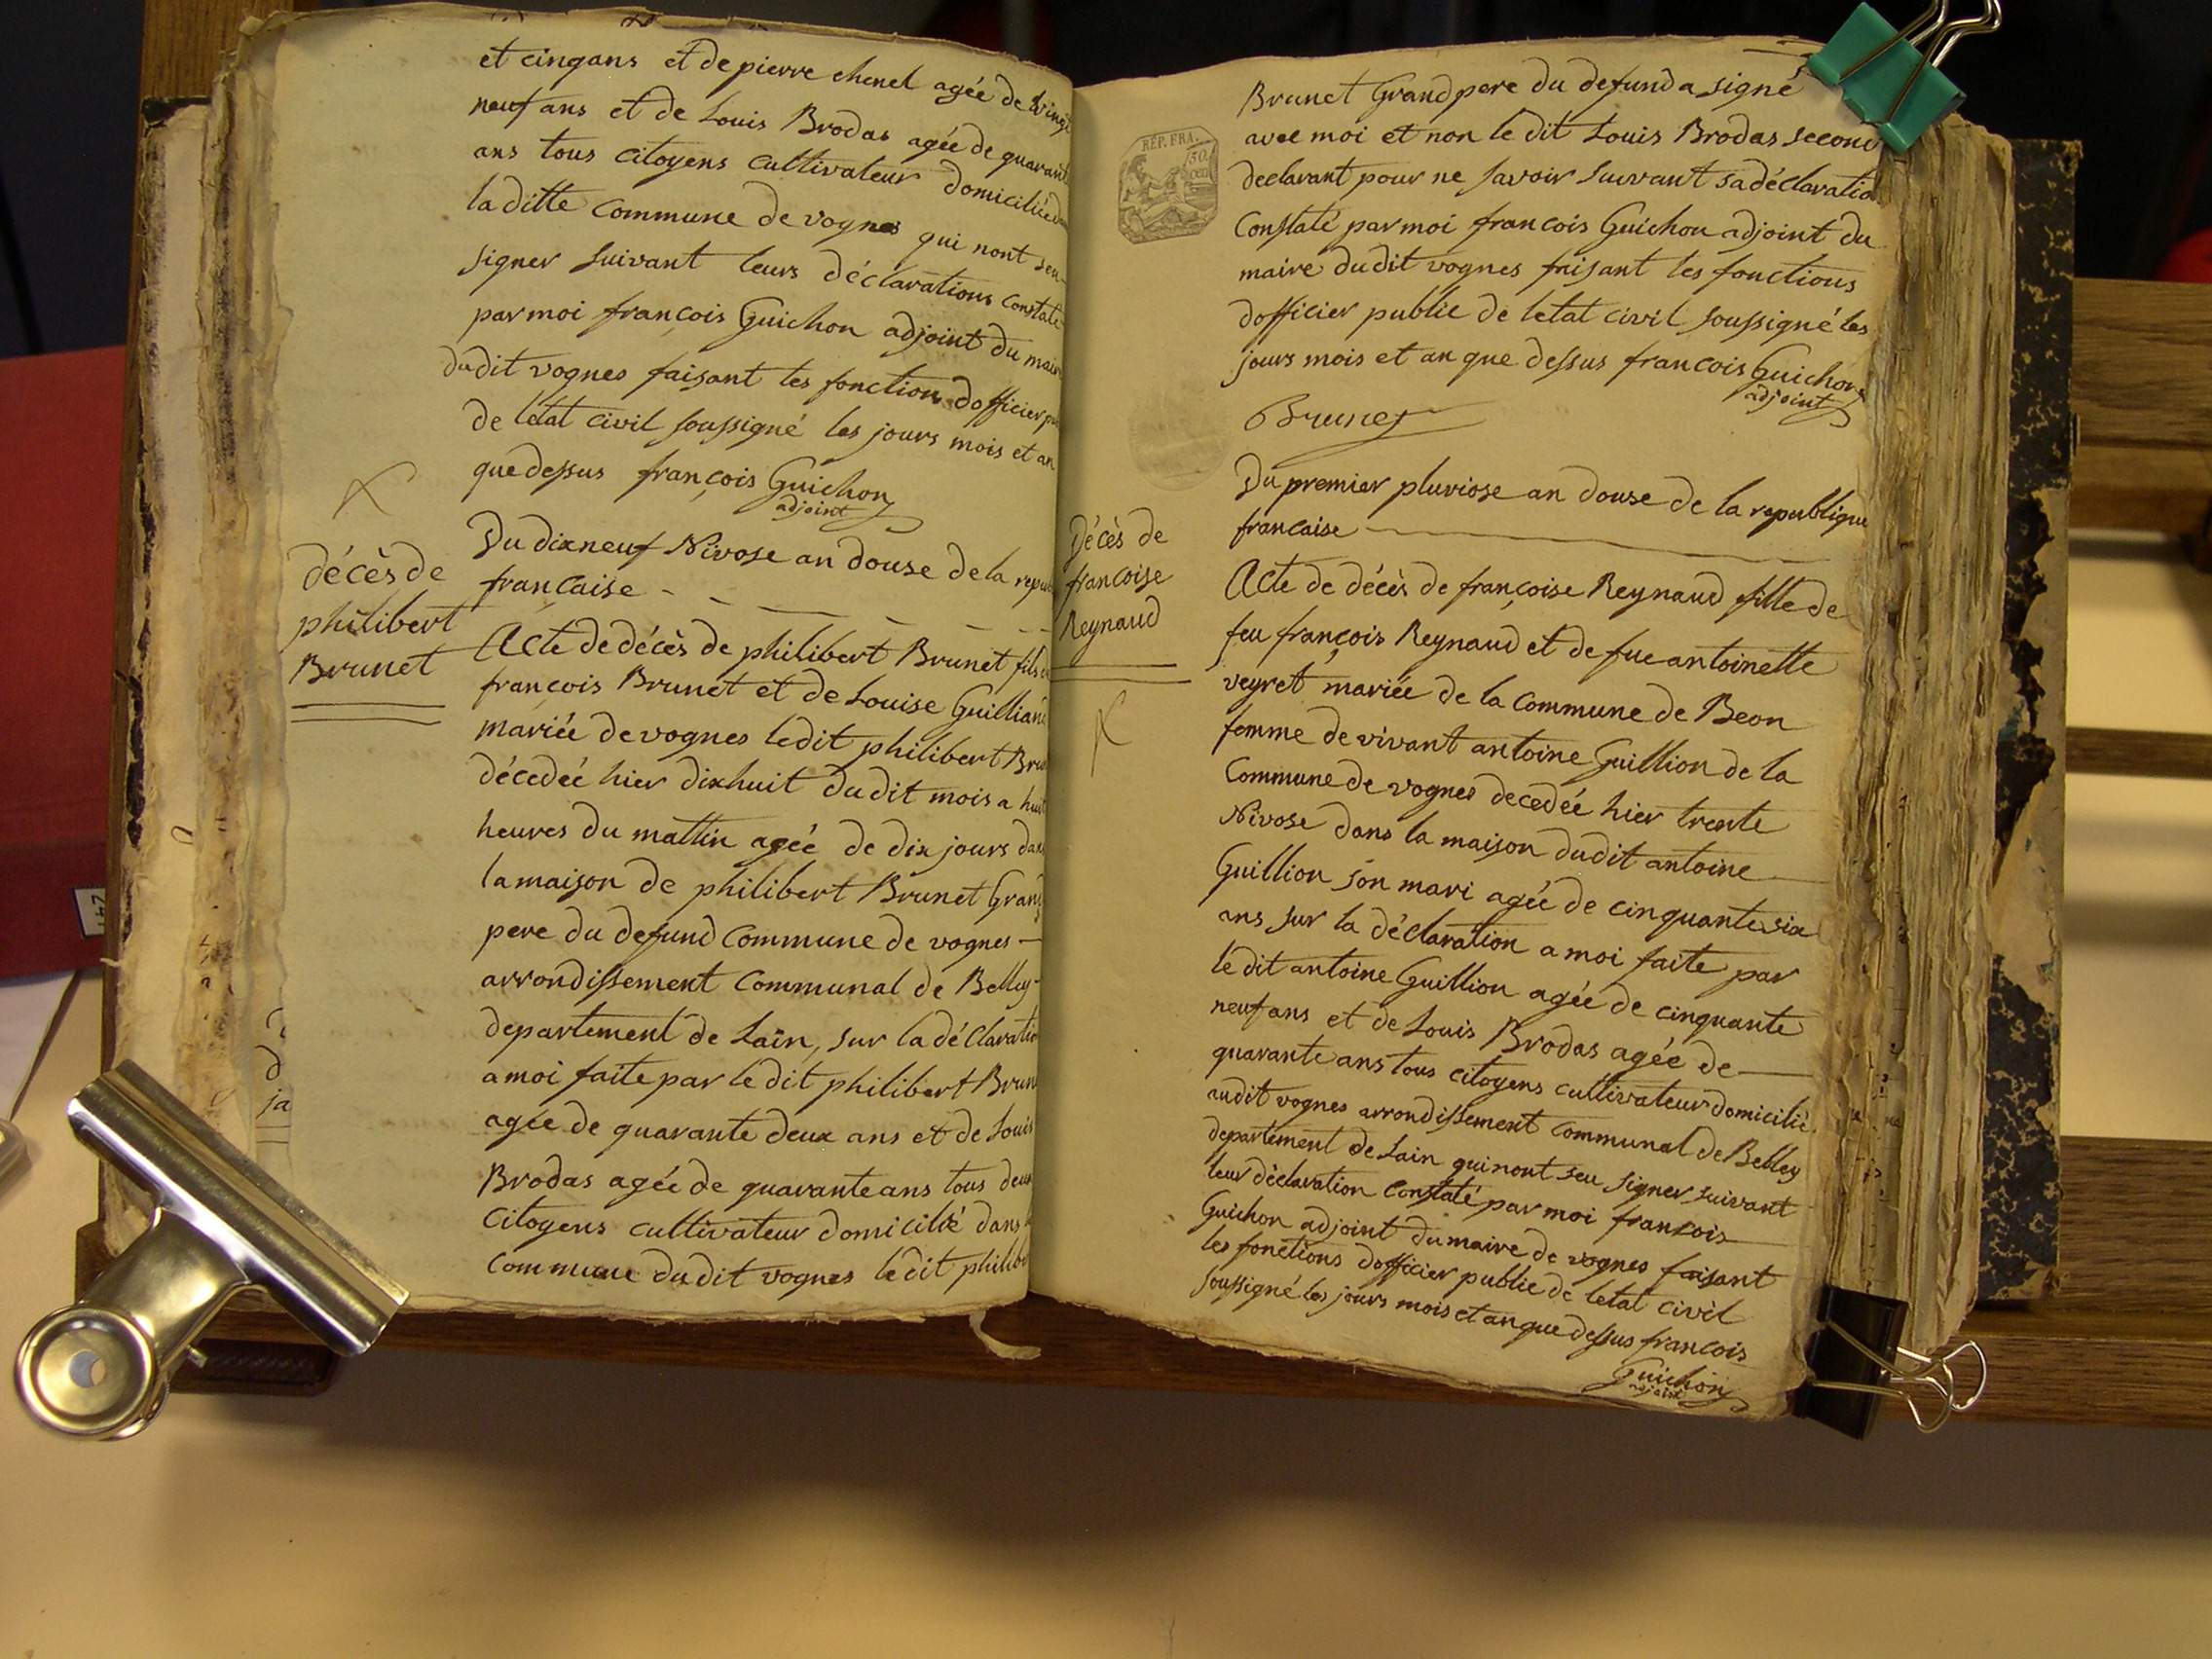 et cinq ans et de pierre chenel agée de vingt
neuf ans et de Louis Brodas agée de quarant
ans tous citoyens cultivateur domicilié
la ditte commune de vognes qui nont seu
signer suivant leurs déclarations constaté
par moi françois Guichon adjoint du maire
dudit vognes faisant les fonction dofficier
de létat civil soussigné les jours mois et an
que dessus françois Guichon
adjoint
Du dixneuf Nivose an douse de la repu
francaise
décès de
philibert
Brunet
Acte de décès de philibert Brunet fils
françois Brunet et de Louise Guilliand
mariée de vognes ledit philibert Bru
décedeé hier dixhuit dudit mois a huit
heures du mattin ageé de dix jours dans
la maison de philibert Brunet Grand
pere du defund commune de vognes
arrondissement communal de Belley
departement de Lain, sur la déclaratio
a moi faite par le dit philibert Brun
agée de quarante deux ans et de Louis
Brodas agée de quarante ans tous deux
citoyens cultivateur domicilié dans
commune dudit vognes ledit philibe
ja
Brunet Grand pere du defund a signé
avec moi et non le dit Louis Brodas second
declarant pour ne savoir suivant sa déclaratio
constaté par moi francois Guichon adjoint du
maire dudit vognes faisant les fonctions
dofficier public de letat civil soussigné les
jours mois et an que dessus francois Guichon
adjoint
Brunet
RÉP. FRA.
50.
cen
Du premier pluviose an douse de la republique
francaise
Décès de
francoise
Reynaud
Acte de décès de françoise Reynaud fille de
feu françois Reynaud et de fue antoinette
veyret mariée de la commune de Beon
femme de vivant antoine Guillion de la
commune de vognes decedée hier trente
Nivose dans la maison dudit antoine
Guillion son mari agée de cinquante six
ans sur la déclaration a moi faite par
le dit antoine Guillion agée de cinquante
neuf ans et de Louis Brodas agée de
quarante ans tous citoyens cultivateur domicilié
audit vognes arrondissement communal de Belley
departement de Lain qui nont seu signer suivant
leur déclaration constaté par moi francois
Guichon adjoint du maire de vognes faisant
les fonctions dofficier public de letat civil
soussigné les jours mois et an que dessus francois
Guichon
adjoint